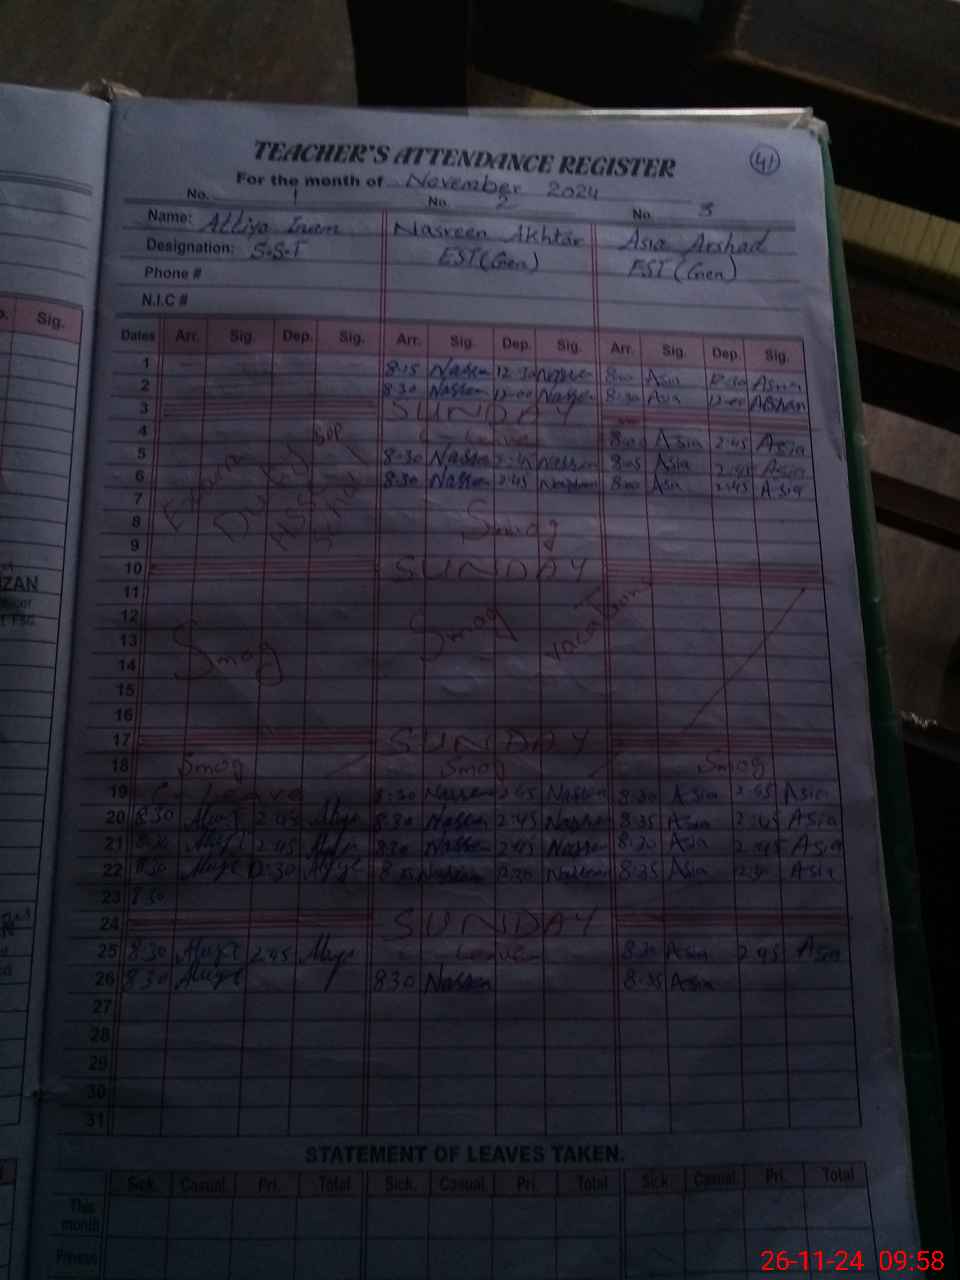 TEACHER'S ATTENDANCE REGISTER
41
For the month of November 2024
No. 1 No. 2 No. 3
Name: Attiya Irum Nasreen Akhtar Asia Arshad
Designation: S.S.T EST(Gen) EST(Gen)
Phone #
N.I.C #
Sig.
Dates Arr. Sig. Dep. Sig. Arr. Sig. Dep. Sig. Arr. Sig. Dep. Sig.
1 8:15 Nasreen 12:30 Nasreen 8:00 Asia Asia
2 8:30 Nasreen 12:00 Nasreen 8:30 Asia 12:00
3 SUNDAY
4 C-Leave 8:00 Asia 2:45 Asia
5 8:30 Nasreen 2:45 Nasreen 8:05 Asia 2:45 Asia
6 8:30 Nasreen 2:45 Nasreen 8:00 Asia 2:45 Asia
7
Exam Duty
8 Smog
9
10 SUNDAY
ZAN
11
12 Smog vacations
13 Smog
14
15
16
17 SUNDAY
18 Smog Smog Smog
19 C-Leave 8:30 Nasreen 2:45 Nasreen 8:30 Asia 2:45 Asia
20 8:30 2:45 8:30 Nasreen 2:45 Nasreen 8:35 Asia 2:45 Asia
21 8:30 2:45 8:30 Nasreen 2:45 Nasreen 8:30 Asia 2:45 Asia
22 8:30 12:30 Nasreen 12:30 Nasreen 8:35 Asia 12:30 Asia
23 8:30
24 SUNDAY
25 8:30 2:45 Leave 8:30 Asia 2:45 Asia
26 8:30 8:30 Nasreen 8:35 Asia
27
28
29
30
31
STATEMENT OF LEAVES TAKEN.
Sick. Casual. Pri. Total Sick. Casual. Pri. Total Sick. Casual. Pri. Total
This
month
26-11-24 09:58